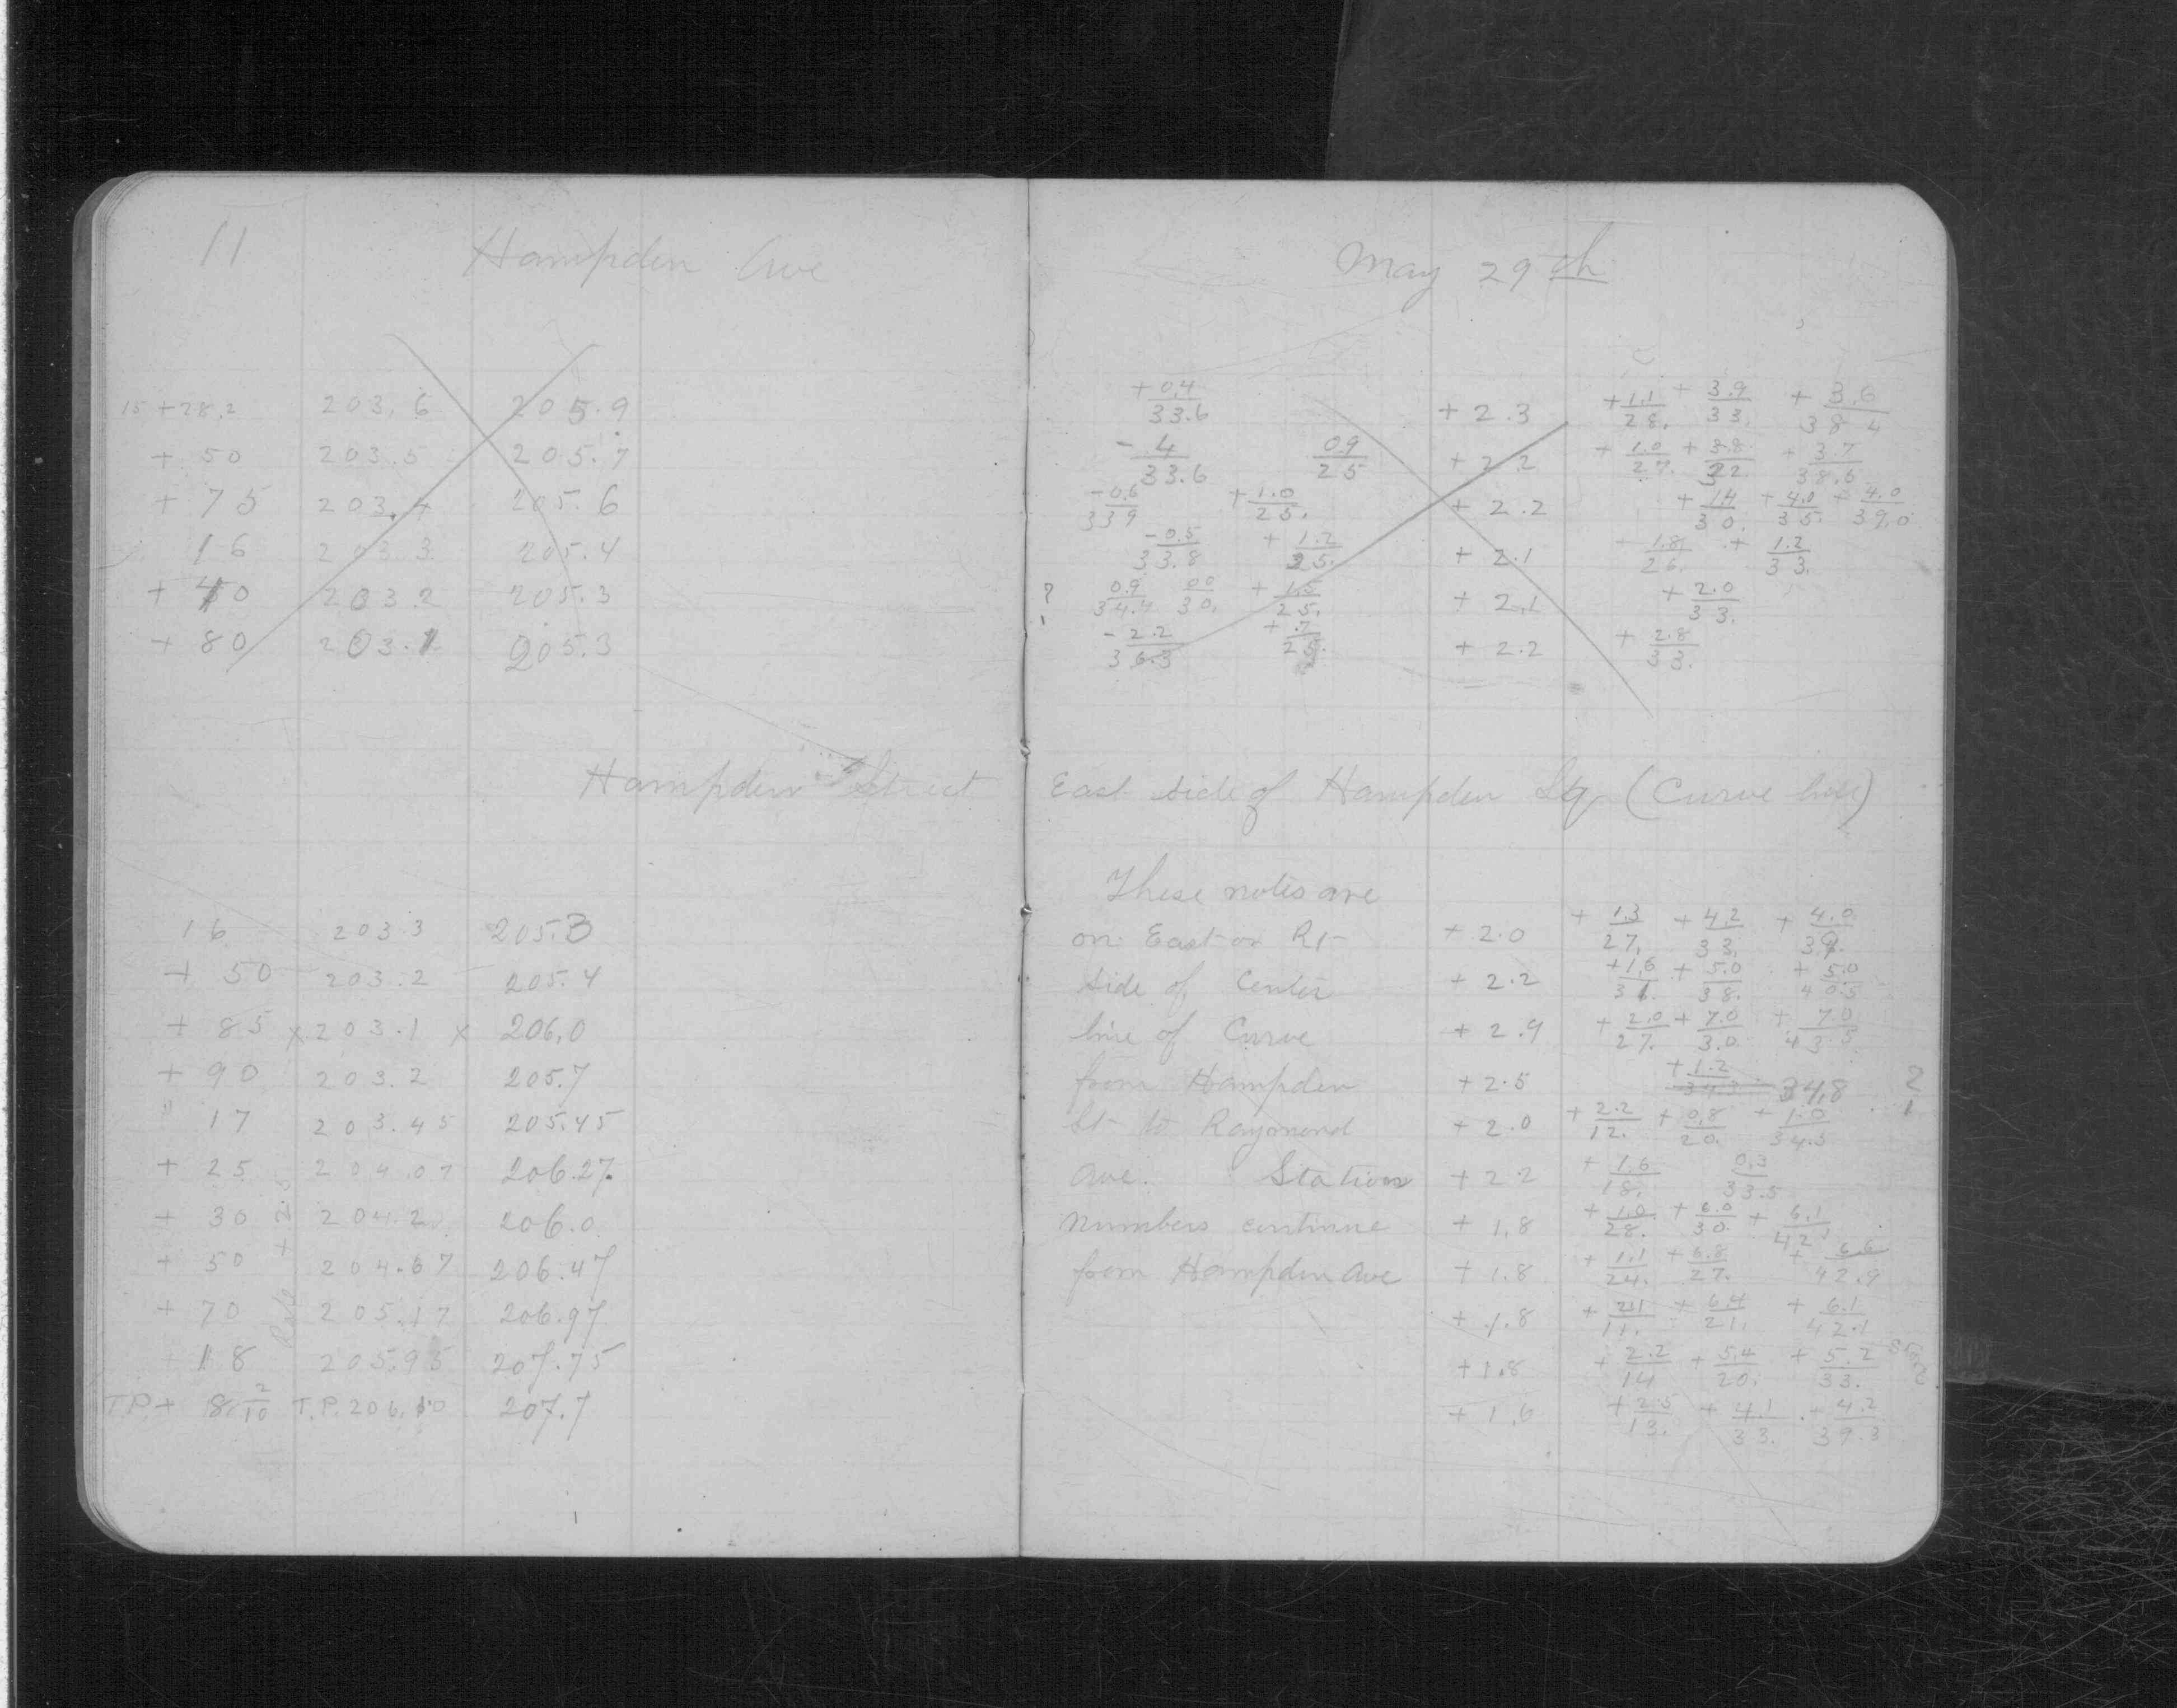 11 Hampden Ave
15 +28.2 203.6 205.9
+ 50 203.5 205.7
+ 75 203.4 205.6
16 203.3 205.4
+ 40 203.2 205.3
+ 80 203.1 205.3
Hampden Street
16 203.3 205.3
+ 50 203.2 205.4
+ 85 x 203.1 x 206.0
+ 90 203.2 205.7
" 17 203.45 205.45
+ 25 204.07 206.27
+ 30 204.20 206.0
+ 50 204.67 206.47
+ 70 205.17 206.97
18 205.95 207.75
T.P. + 8 2/10 T.P. 206.10 207.7
Rate + 2.5
May 29th
+ 0.4/33.6 + 2.3 + 1.1/28. + 3.9/33. + 3.6/38.4
- 4/33.6 0.9/25 + 2.2 + 1.0/27. + 3.8/32. + 3.7/38.6
- 0.6/33.9 + 1.0/25. + 2.2 + 1.4/30. + 4.0/35. + 4.0/39.0
- 0.5/33.8 + 1.2/25. + 2.1 - 1.8/26. + 1.2/33.
? 0.9/34.4 00/30. + 1.5/25. + 2.1 + 2.0/33.
- 2.2/36.3 + .7/25. + 2.2 + 2.8/33.
East side of Hampden Sq (Curve line)
These notes are
on East or Rt + 2.0 + 1.3/27. + 4.2/33. + 4.0/39.
side of Center + 2.2 + 1.6/31. + 5.0/38. + 5.0/40.5
line of Curve + 2.9 + 2.0/27. + 7.0/30. + 7.0/43.5
from Hampden + 2.5 + 1.2/34.3 34.8 ?
St to Raymond + 2.0 + 2.2/12. + 0.8/20. + 1.0/34.5
Ave. Station + 2.2 + 1.6/18. 0.3/33.5
numbers continue + 1.8 + 1.0/28. + 6.0/30. + 6.1/42.1
from Hampden Ave + 1.8 + 1.1/24. + 6.8/27. + 6.6/42.9
+ 1.8 + 2.1/11. + 6.4/21. + 6.1/42.1
+ 1.8 + 2.2/14 + 5.4/20. + 5.2/33.
+ 1.6 + 2.5/13. + 4.1/33. + 4.2/39.3